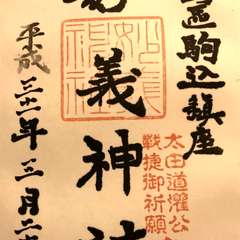 區駒込鎮座
太田道灌公
戦捷御祈願
妙義神社
平成三十一年三月二